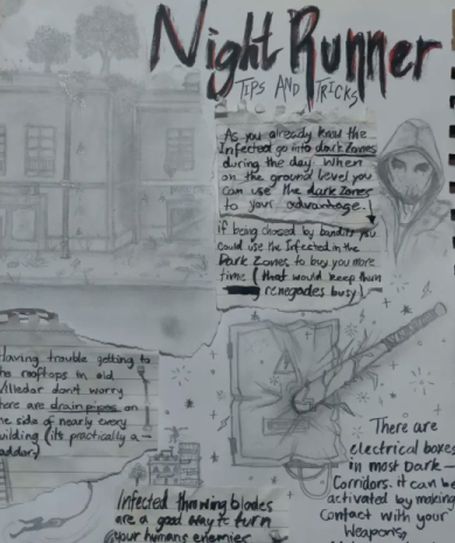 Night Runner
TIPS AND TRICKS
As you already know the
Infected go into dark zones
during the day. When
on the ground level you
can use the dark zones
to your advantage.
if being chased by bandits you
could use the Infected in the
Dark Zones to buy you more
time (that would keep them
renegades busy)
Having trouble getting to
the rooftops in old
Villedor don't worry
there are drain pipes on
the side of nearly every
building (its practically a
ladder)
There are
electrical boxes
in most Dark
Corridors. it can be
activated by making
contact with your
Weapons,
Infected throwing blades
are a good way to turn
your humans enemies